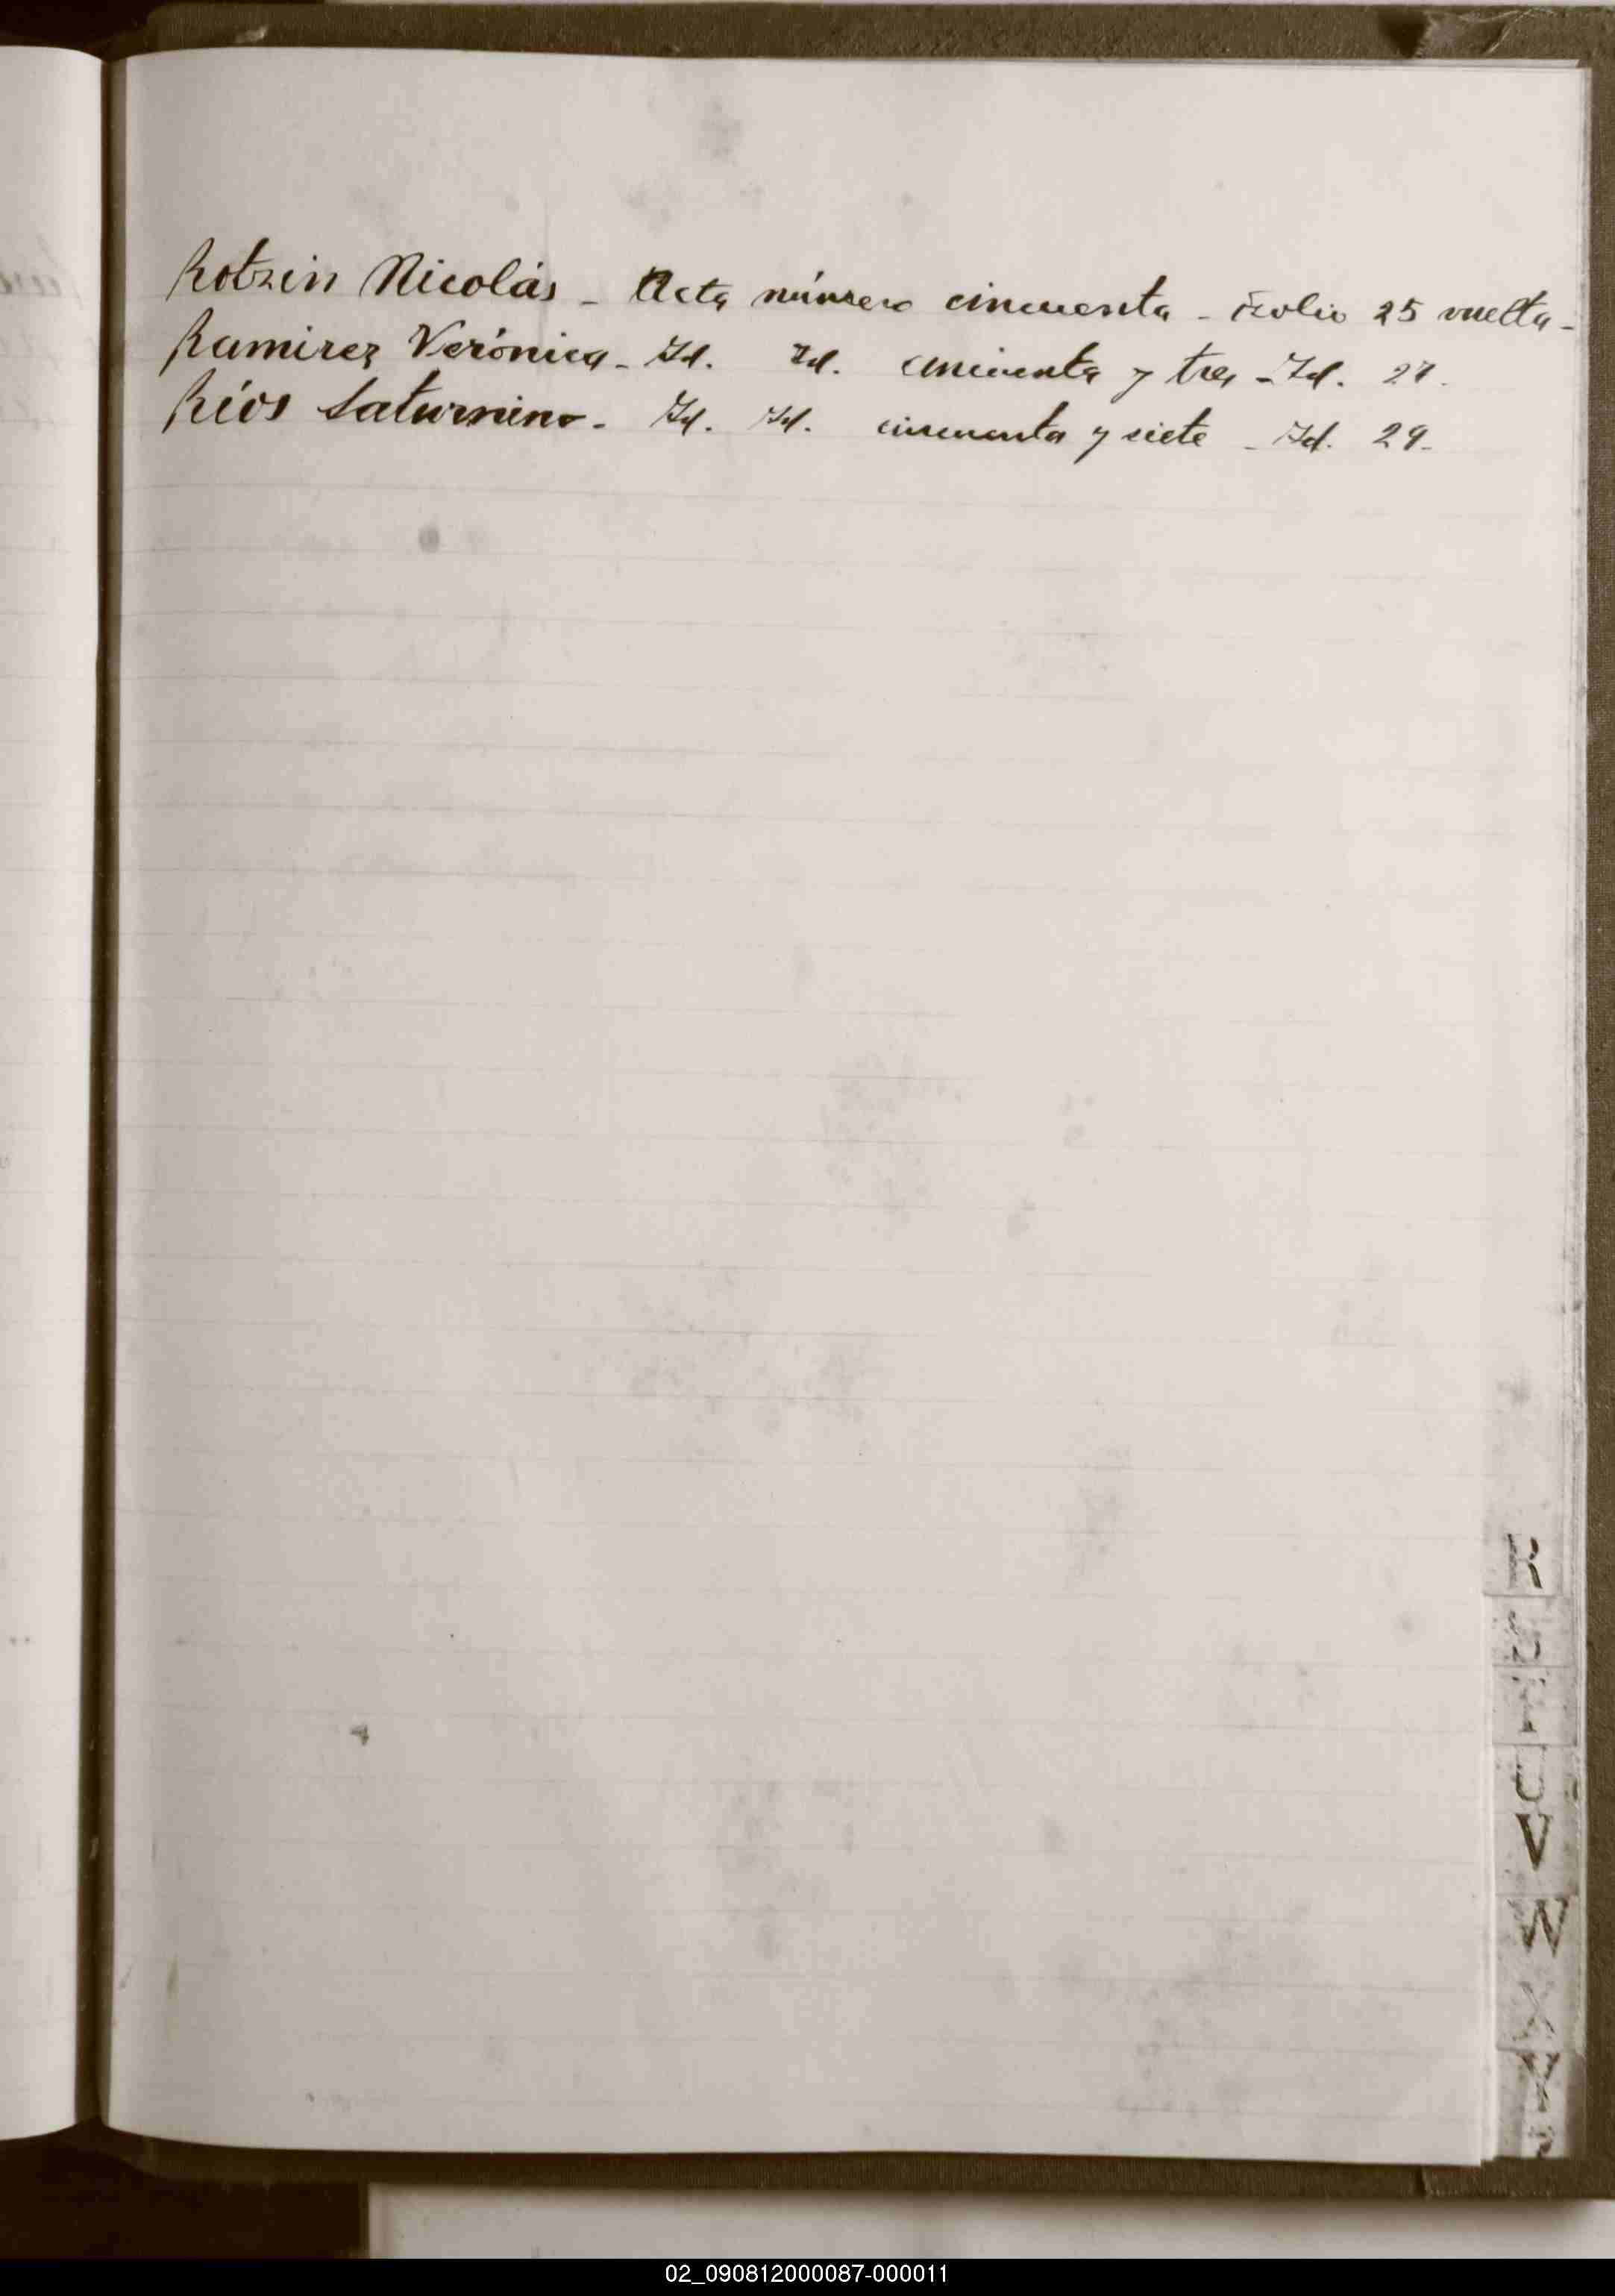 Rotzin Nicolás - Acta número cincuenta - folio 25 vuelta -
Ramirez Verónica - Id. Id. cincuenta y tres - Id. 27.
Ríos Saturnino - Id. Id. cincuenta y siete - Id. 29 -
R
S
T
U
V
W
X
Y
Z
02_090812000087-000011